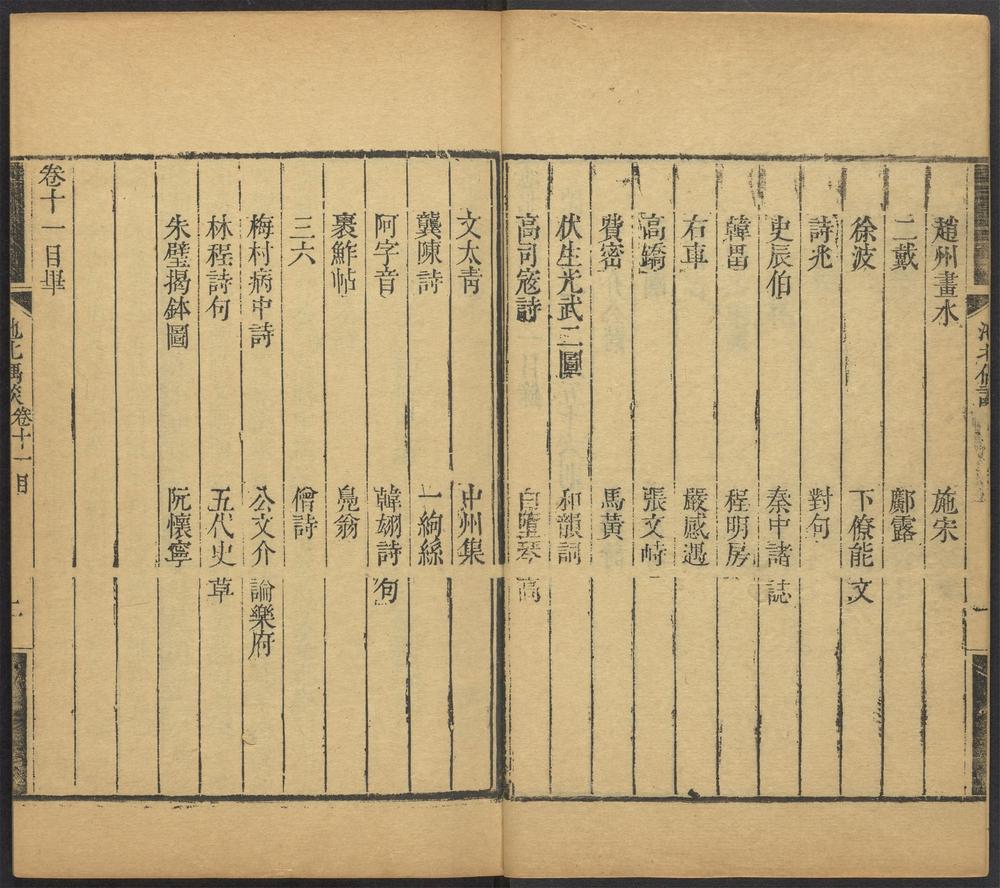 趙州畫水 施宋
二戴 鄺露
徐波 下僚能文
詩兆 對句
史辰伯 秦中諸誌
韓畕 程明房
右車 嚴感遇
高鐈 張文峙
費密 馬黃
伏生光武二圖 和韻詞
高司寇詩 白墮琴高
文太青 中州集
龔陳詩 一絇絲
阿字音 韓翃詩句
裹鮓帖 鳧翁
三六 僧詩
梅村病中詩 公文介論樂府
林程詩句 五代史草
朱璧揭鉢圖 阮懷寧
卷十一目畢
池北偶談 卷十一目